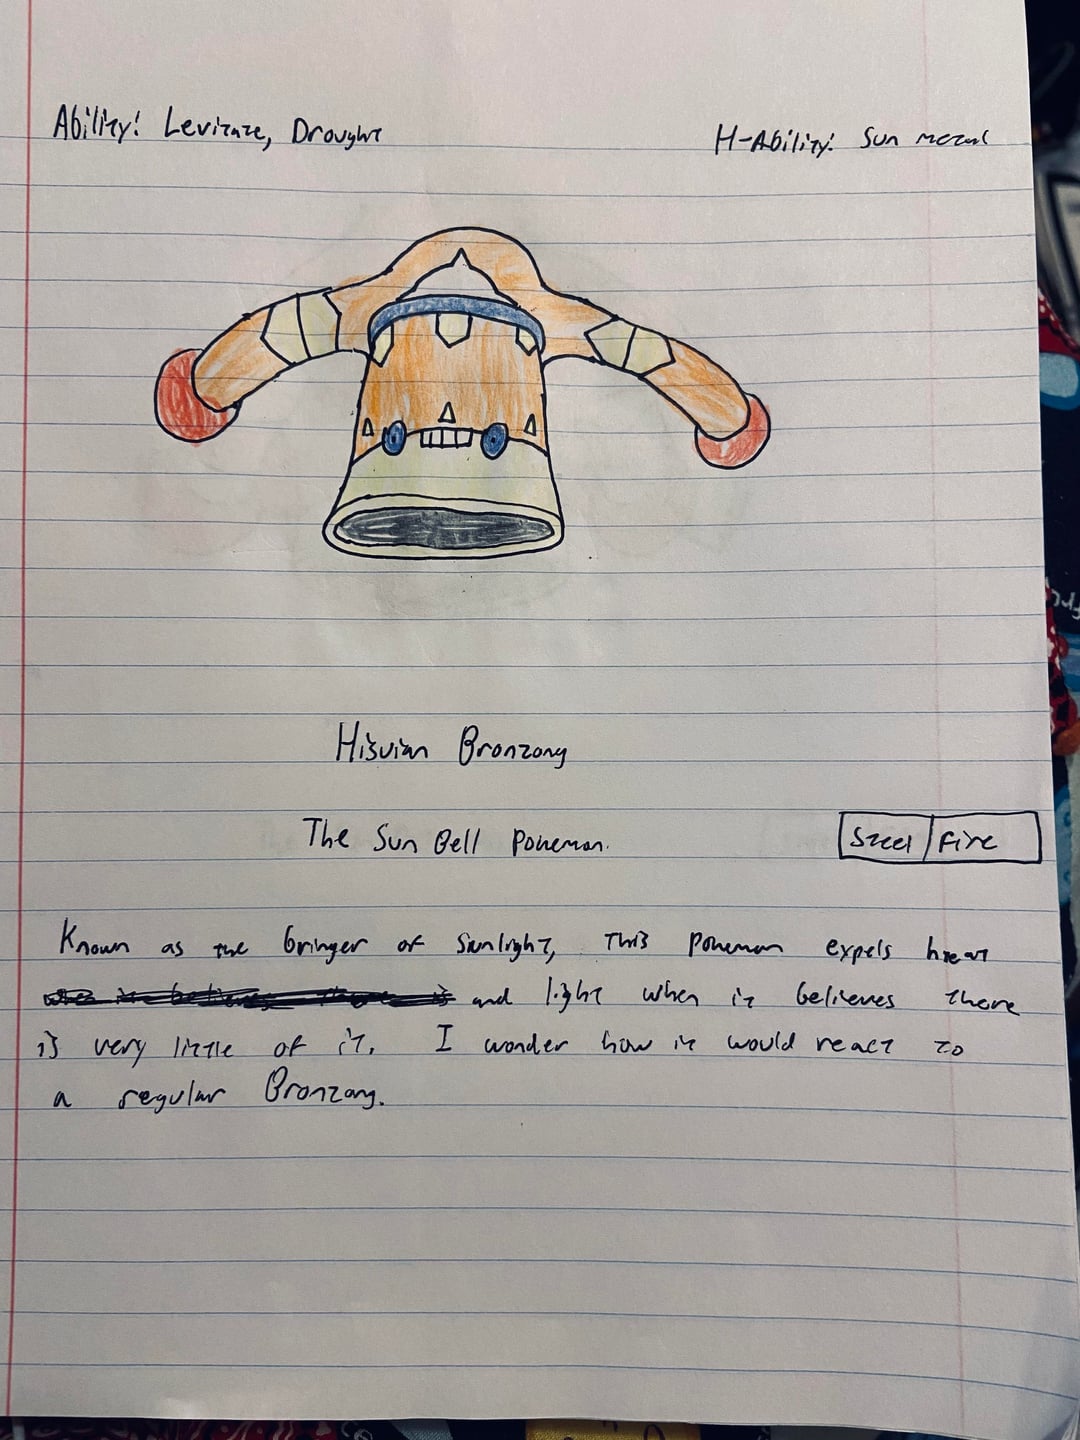 Ability: Levitate, Drought
H-Ability: Sun metal
Hisuian Bronzong
The Sun Bell Pokemon.
Steel | Fire
Known as the bringer of sunlight, This pokemon expels heat
and light when it believes there
is very little of it. I wonder how it would react to
a regular Bronzong.